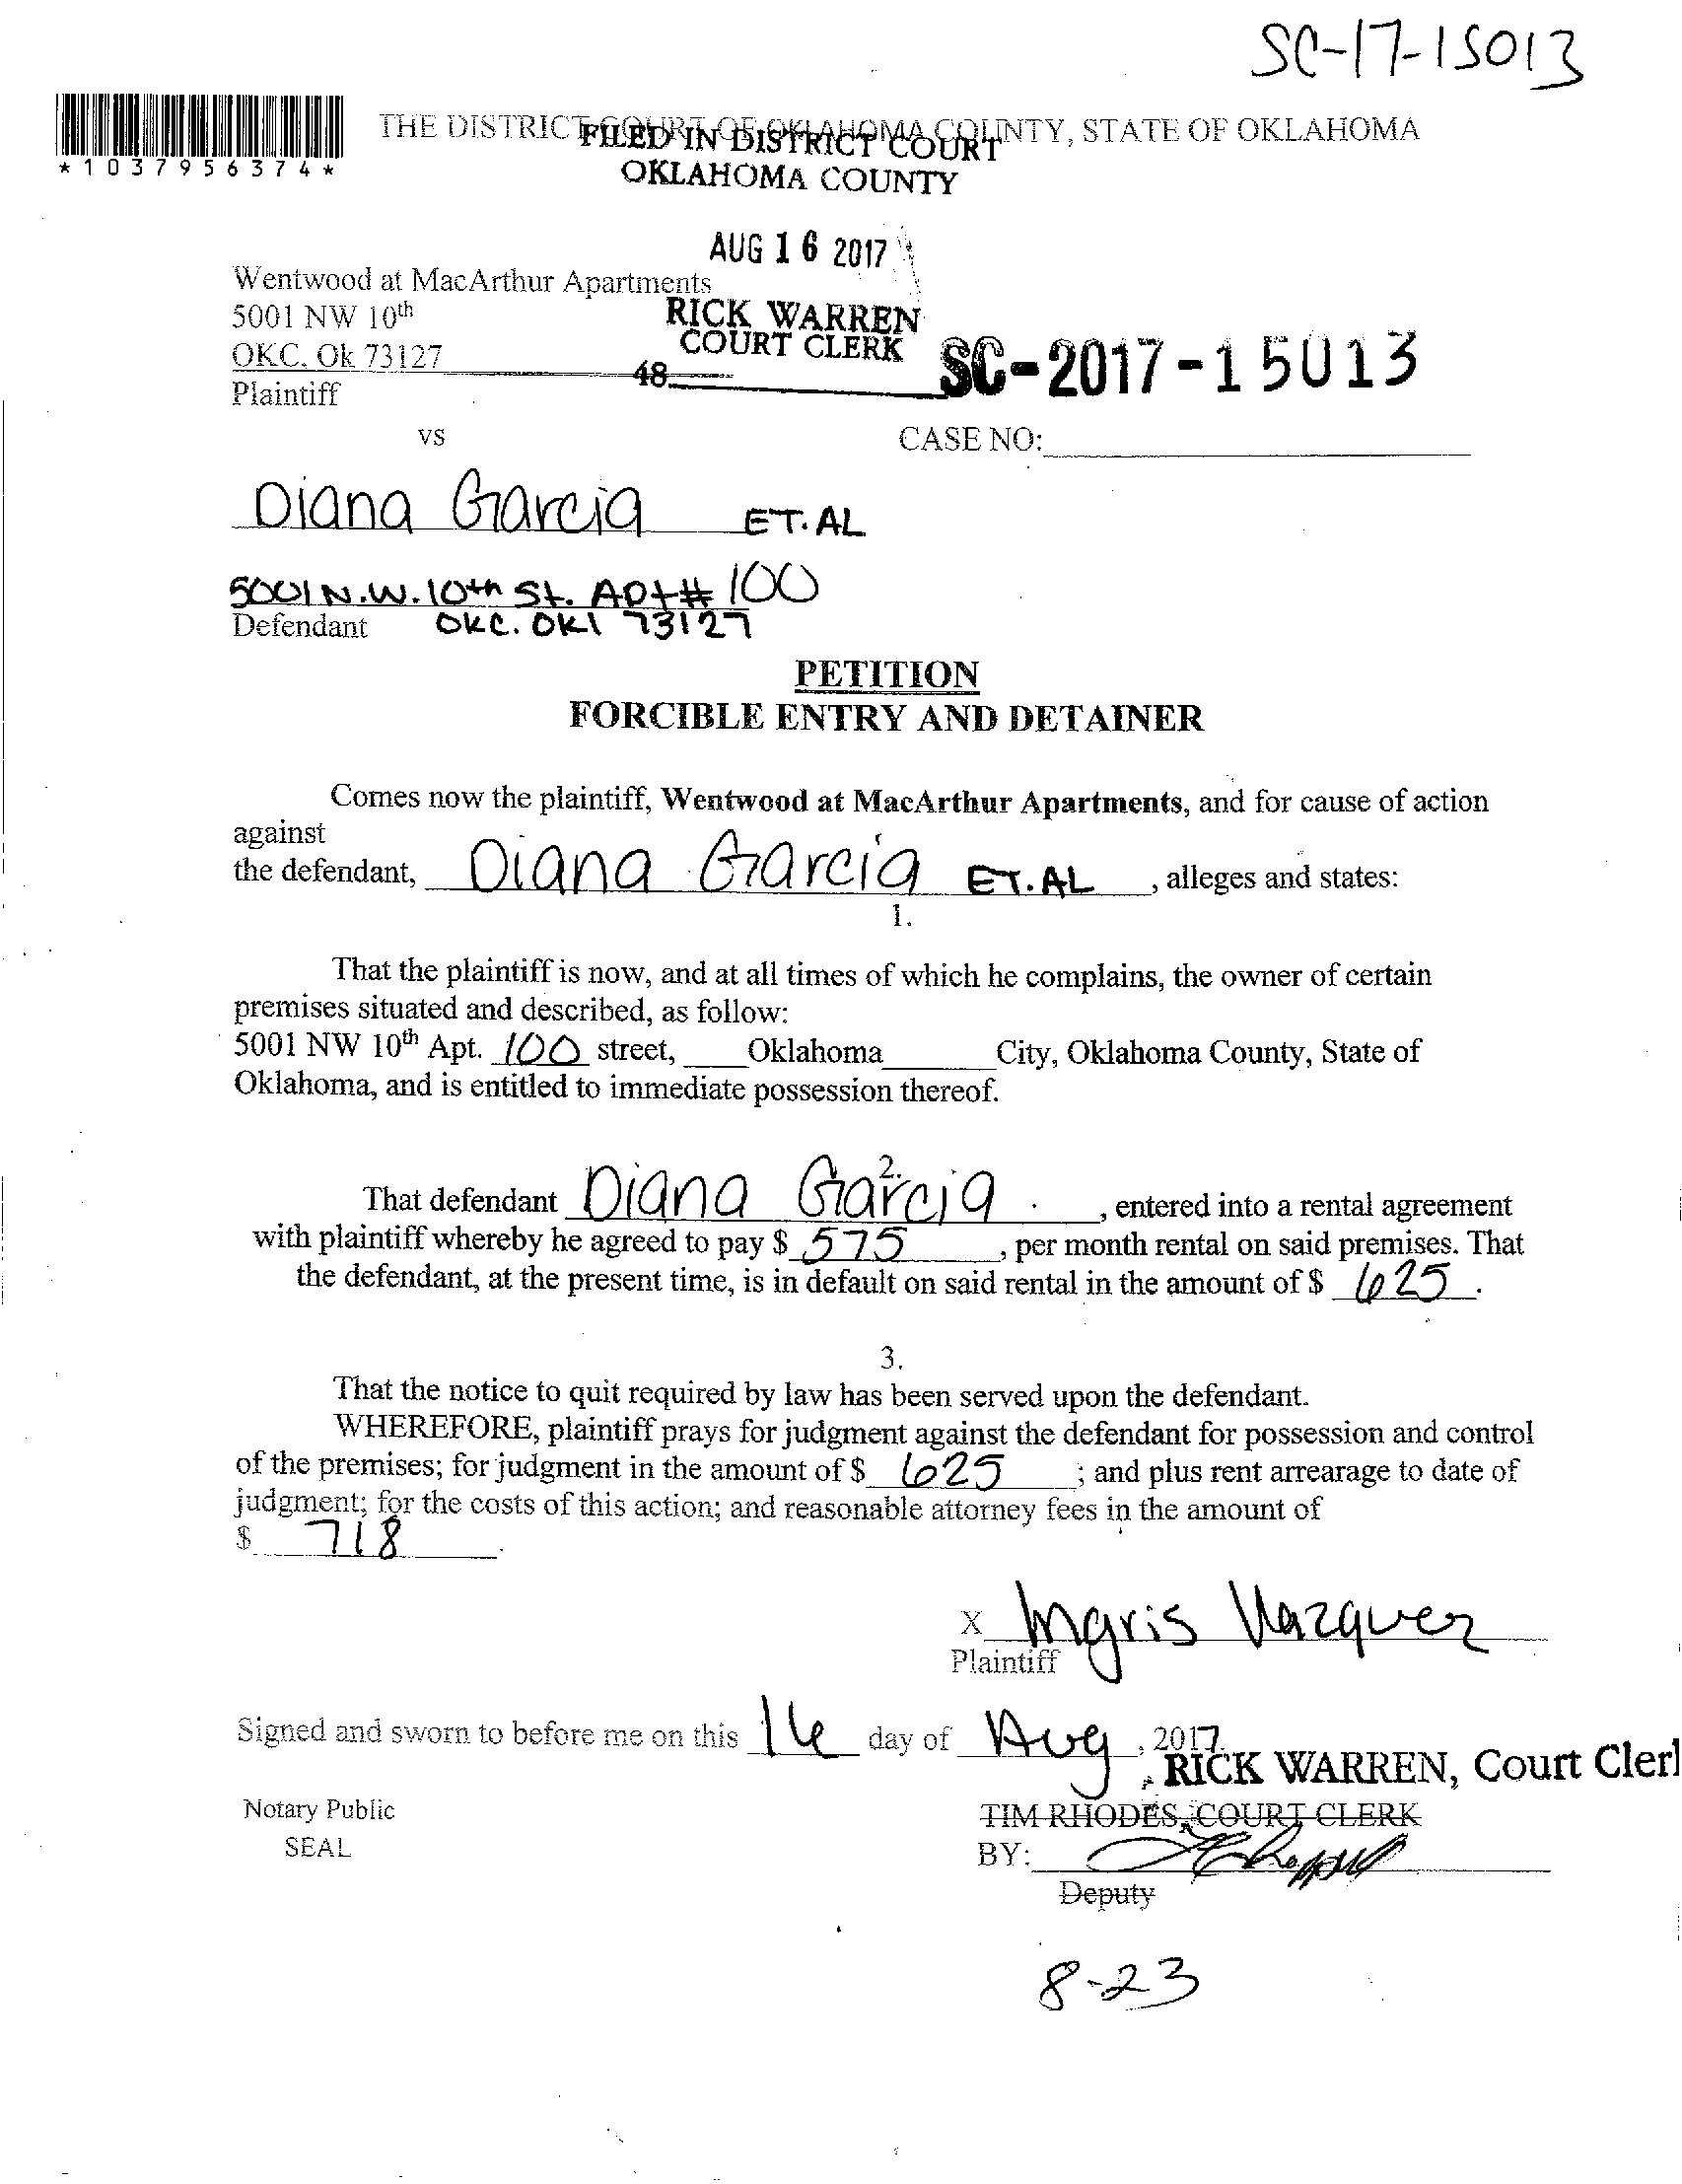 SC-17-15013
*1037956374*
THE DISTRICT COURT OF OKLAHOMA COUNTY, STATE OF OKLAHOMA
FILED IN DISTRICT COURT
OKLAHOMA COUNTY
AUG 16 2017
Wentwood at MacArthur Apartments
5001 NW 10th
RICK WARREN
COURT CLERK
OKC. Ok 73127
48
SC-2017-15013
Plaintiff
vs
CASE NO:
Diana Garcia ET.AL
5001 N.W. 10th St. Apt# 100
Defendant OKC. OKl 73127
PETITION
FORCIBLE ENTRY AND DETAINER
Comes now the plaintiff, Wentwood at MacArthur Apartments, and for cause of action
against
the defendant, Diana Garcia ET.AL, alleges and states:
1.
That the plaintiff is now, and at all times of which he complains, the owner of certain
premises situated and described, as follow:
5001 NW 10th Apt. 100 street, Oklahoma City, Oklahoma County, State of
Oklahoma, and is entitled to immediate possession thereof.
2.
That defendant Diana Garcia, entered into a rental agreement
with plaintiff whereby he agreed to pay $ 575, per month rental on said premises. That
the defendant, at the present time, is in default on said rental in the amount of $ 625.
3.
That the notice to quit required by law has been served upon the defendant.
WHEREFORE, plaintiff prays for judgment against the defendant for possession and control
of the premises; for judgment in the amount of $ 625; and plus rent arrearage to date of
judgment; for the costs of this action; and reasonable attorney fees in the amount of
$ 718.
x Ingris Vazquez
Plaintiff
Signed and sworn to before me on this 16 day of Aug, 2017.
RICK WARREN, Court Clerk
Notary Public
TIM RHODES, COURT CLERK
SEAL
BY:
Deputy
8-23